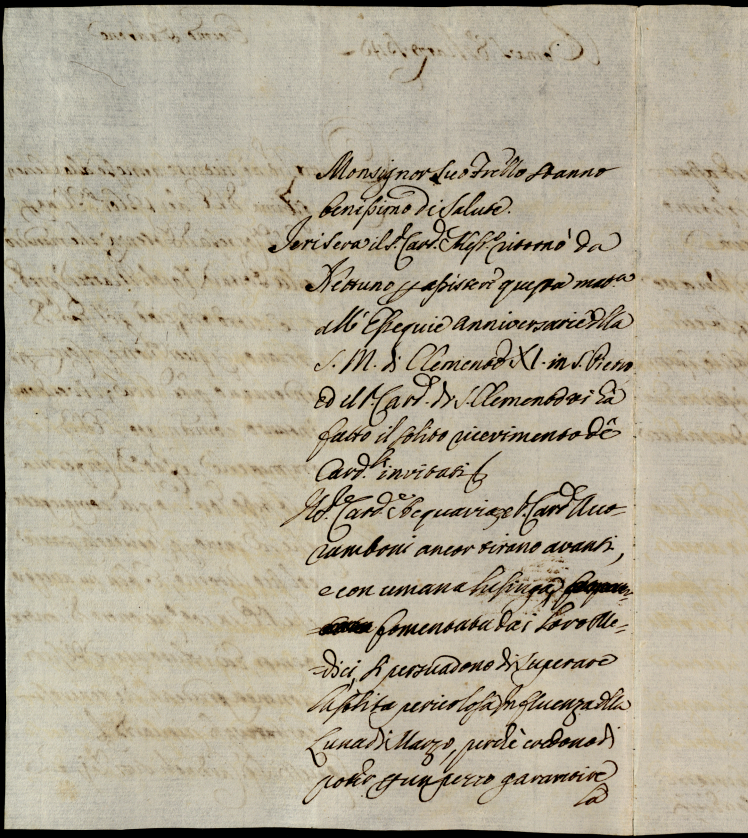 Monsignor suo Frẽllo stanno
benissimo di Salute.
Jerisera il S. Card. ritornò da
Nettuno p assistere questa matt.a
all' Essequie anniversarie della
S. M. di Clemente XI. in S. Pietro
ed il S. Card. di S. Clemente vi hà
fatto il solito ricevimento de
Card.li invitati
Il S. Card. Acquaviva, e S. Card. Acco-
ramboni ancor tirano avanti,
e con umana lusinga,
fomentata dai loro Me-
dici, si persuadono di superare
la solita pericolosa influenza della
Luna di Marzo, perchè credono di
poter p un pezzo garantire
la